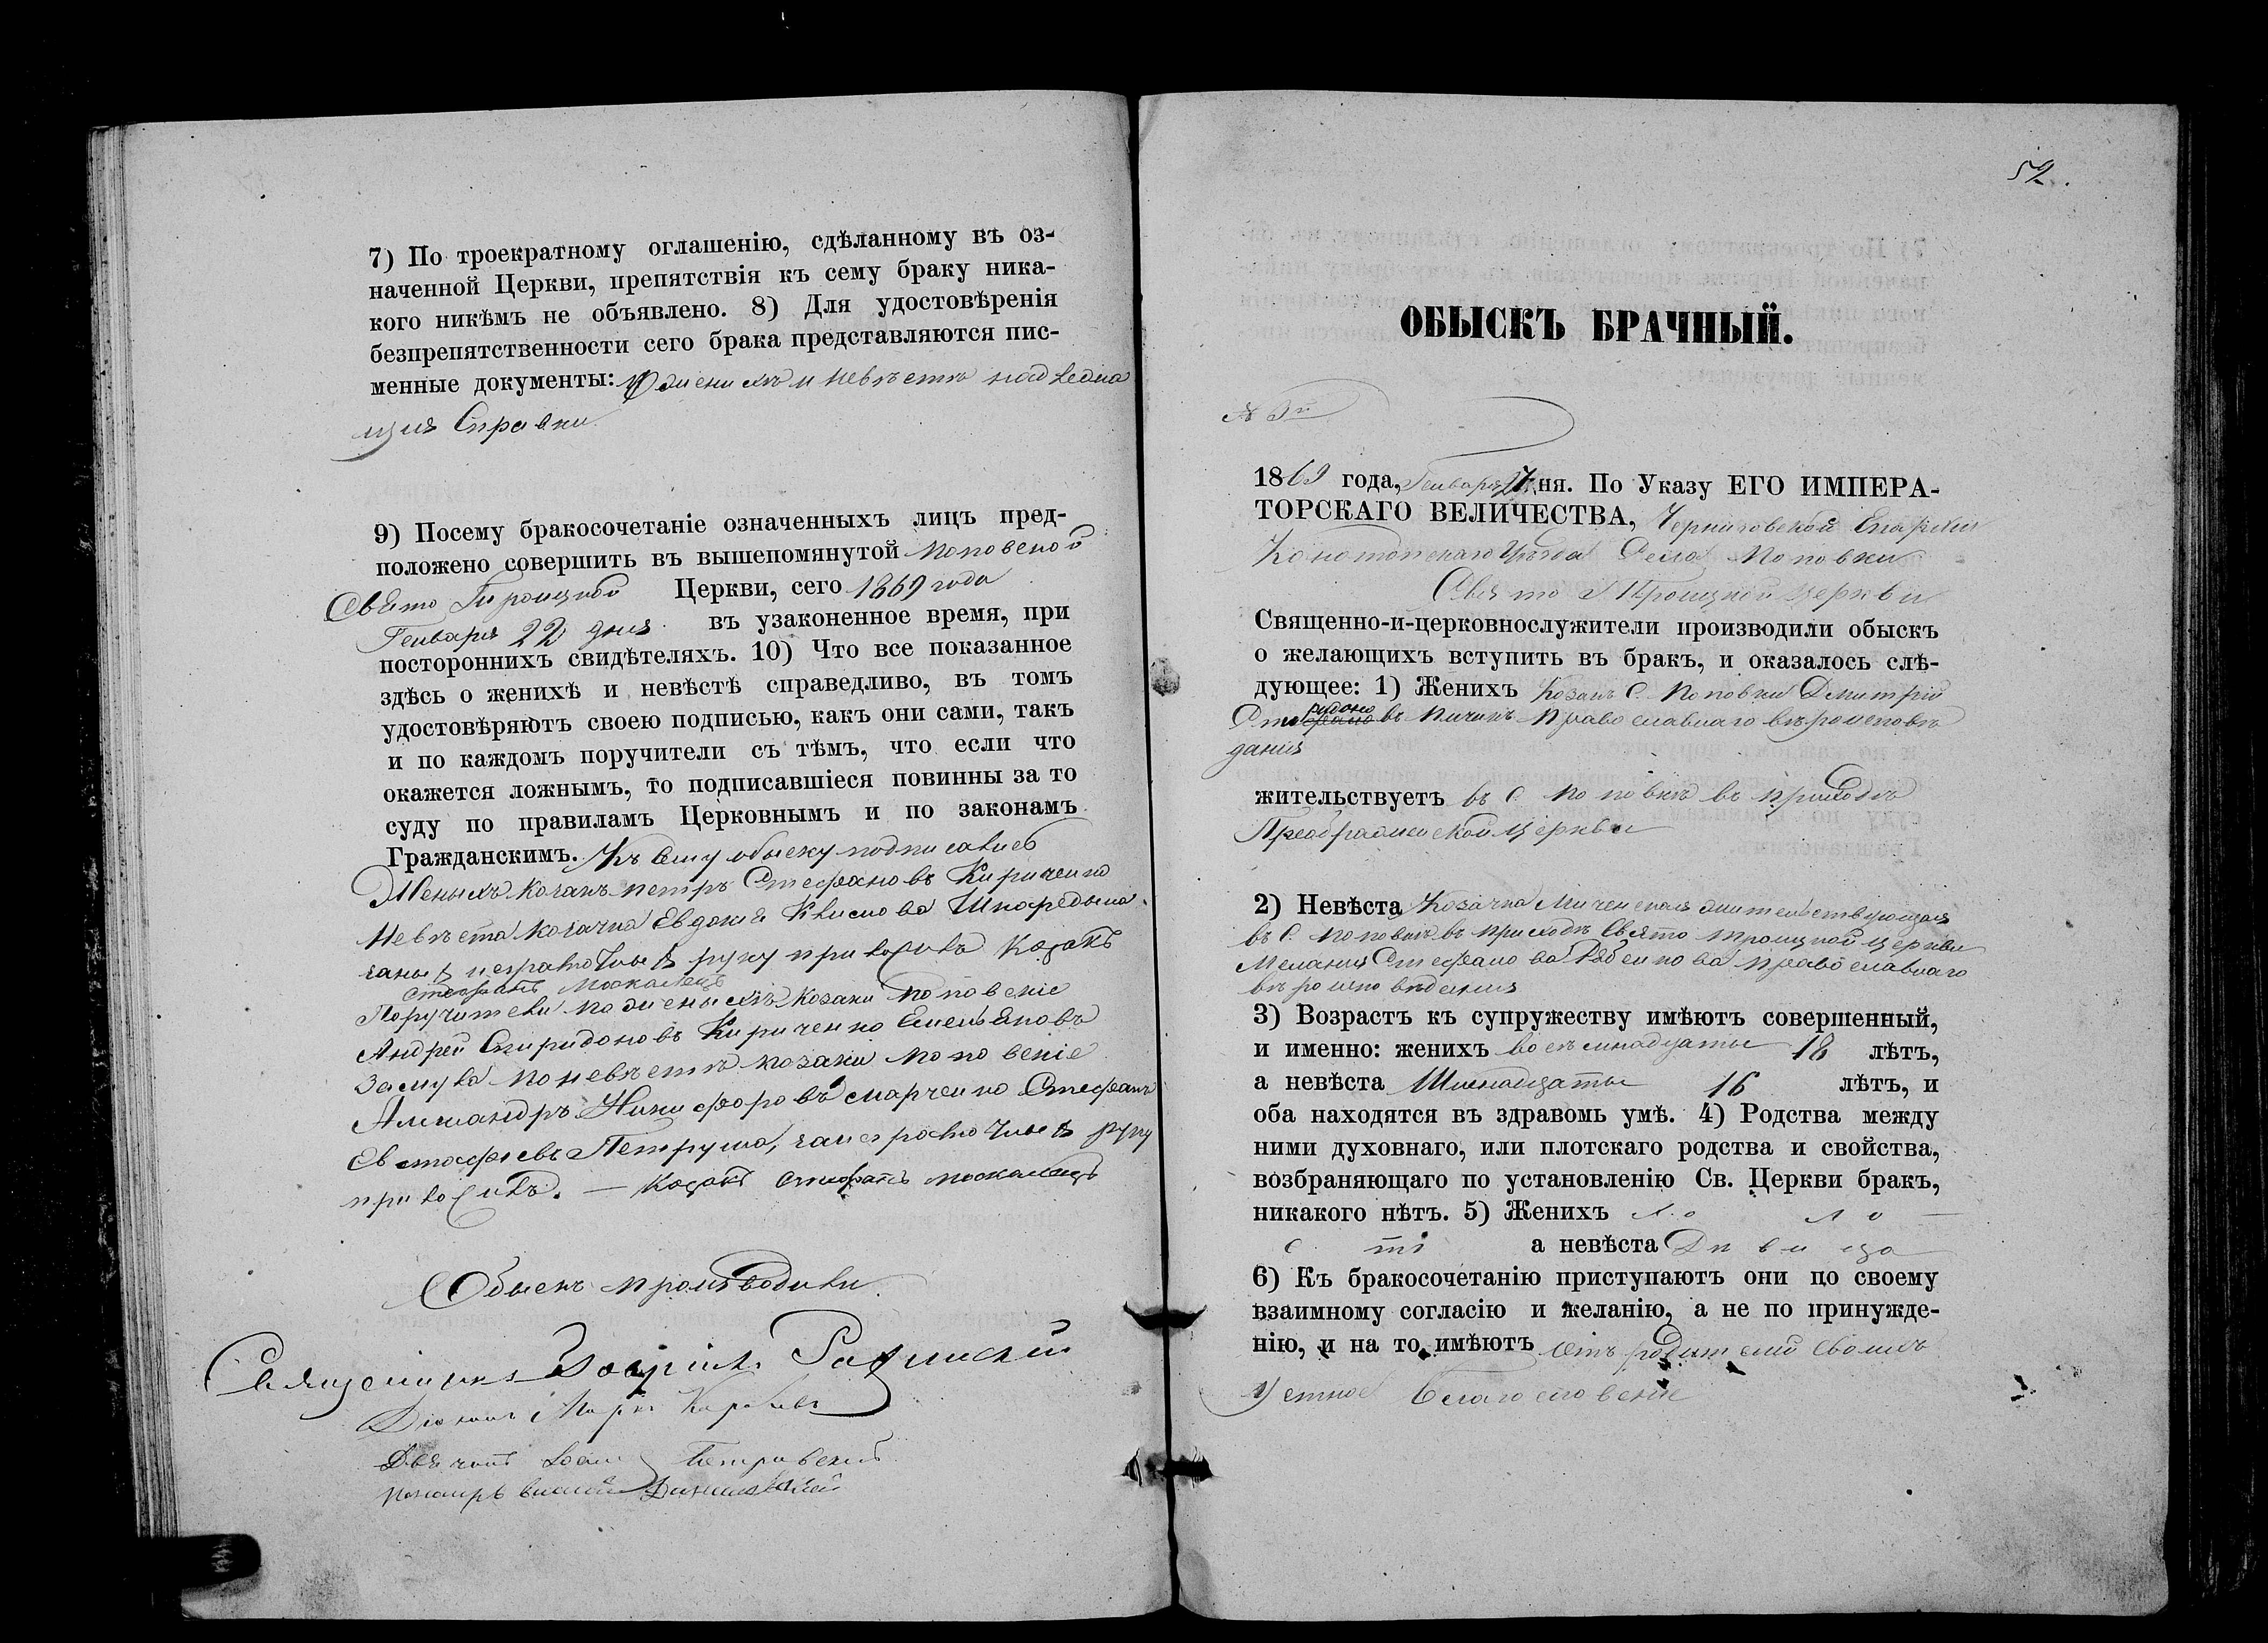 7) По троекратному оглашенію, сдѣланному въ оз-
наченной Церкви, препятствія къ сему браку ника-
кого никѣмъ не объявлено. 8) Для удостовѣренія
безпрепятственности сего брака представляются пис-
менные документы: о женихѣ и невѣстѣ надлежа
щія Справки.
9) Посему бракосочетаніе означенныхъ лицъ пред-
положено совершить въ вышепомянутой Поповской
Свято Троицкой Церкви, сего 1869 года
Генваря 22 дня въ узаконенное время, при
постороннихъ свидѣтеляхъ. 10) Что все показанное
здѣсь о женихѣ и невѣстѣ справедливо, въ томъ
удостовѣряютъ своею подписью, какъ они сами, такъ
и по каждомъ поручители съ тѣмъ, что если что
окажется ложнымъ, то подписавшіеся повинны за то
суду по правиламъ Церковнымъ и по законамъ
Гражданскимъ. Къ Сему обыску подписались
Женихъ козакъ петръ Стефановъ Кириченко
Невѣста козачка Евдокія
руку приложилъ Козакъ
Стефанъ Москалецъ
Поручители по женихѣ козаки Поповскіе
Андрей Спиридоновъ Кириченко Емельяновъ
по невѣстѣ козаки Поповскіе
Александръ Никифоровъ Марченко Стефанъ
Евстафіевъ Петруша, руку
приложилъ. — Козакъ Стефанъ Москалецъ
Обыскъ производили.
Священникъ
Діаконъ Маркъ
Дьячокъ Іоаннъ Петровскій
пономарь
52.
ОБЫСКЪ БРАЧНЫЙ.
№ 3й
1869 года, Генваря дня. По Указу ЕГО ИМПЕРА-
ТОРСКАГО ВЕЛИЧЕСТВА, Черниговской Епархіи
Конотопскаго Уѣзда Села Поповки
Свято Троицкой церкви
Священно-и-церковнослужители производили обыскъ
о желающихъ вступить въ бракъ, и оказалось слѣ-
дующее: 1) Женихъ Козакъ С. Поповки Дмитрій
православнаго вѣроисповѣ
данія
жительствуетъ въ С. Поповкѣ въ приходѣ
Преображенской церкви
2) Невѣста Козачка жительствующая
въ С. Поповкѣ въ приходѣ Свято Троицкой церкви
Меланія Стефанова православнаго
вѣроисповѣданія
3) Возрастъ къ супружеству имѣютъ совершенный,
и именно: женихъ восемнадцать 18 лѣтъ,
а невѣста Шеснадцать 16 лѣтъ, и
оба находятся въ здравомъ умѣ. 4) Родства между
ними духовнаго, или плотскаго родства и свойства,
возбраняющаго по установленію Св. Церкви бракъ,
никакого нѣтъ. 5) Женихъ хо ло —
с тъ а невѣста Дѣвица
6) Къ бракосочетанію приступаютъ они по своему
взаимному согласію и желанію, а не по принужде-
нію, и на то имѣютъ отъ родителей своихъ
устное благословеніе